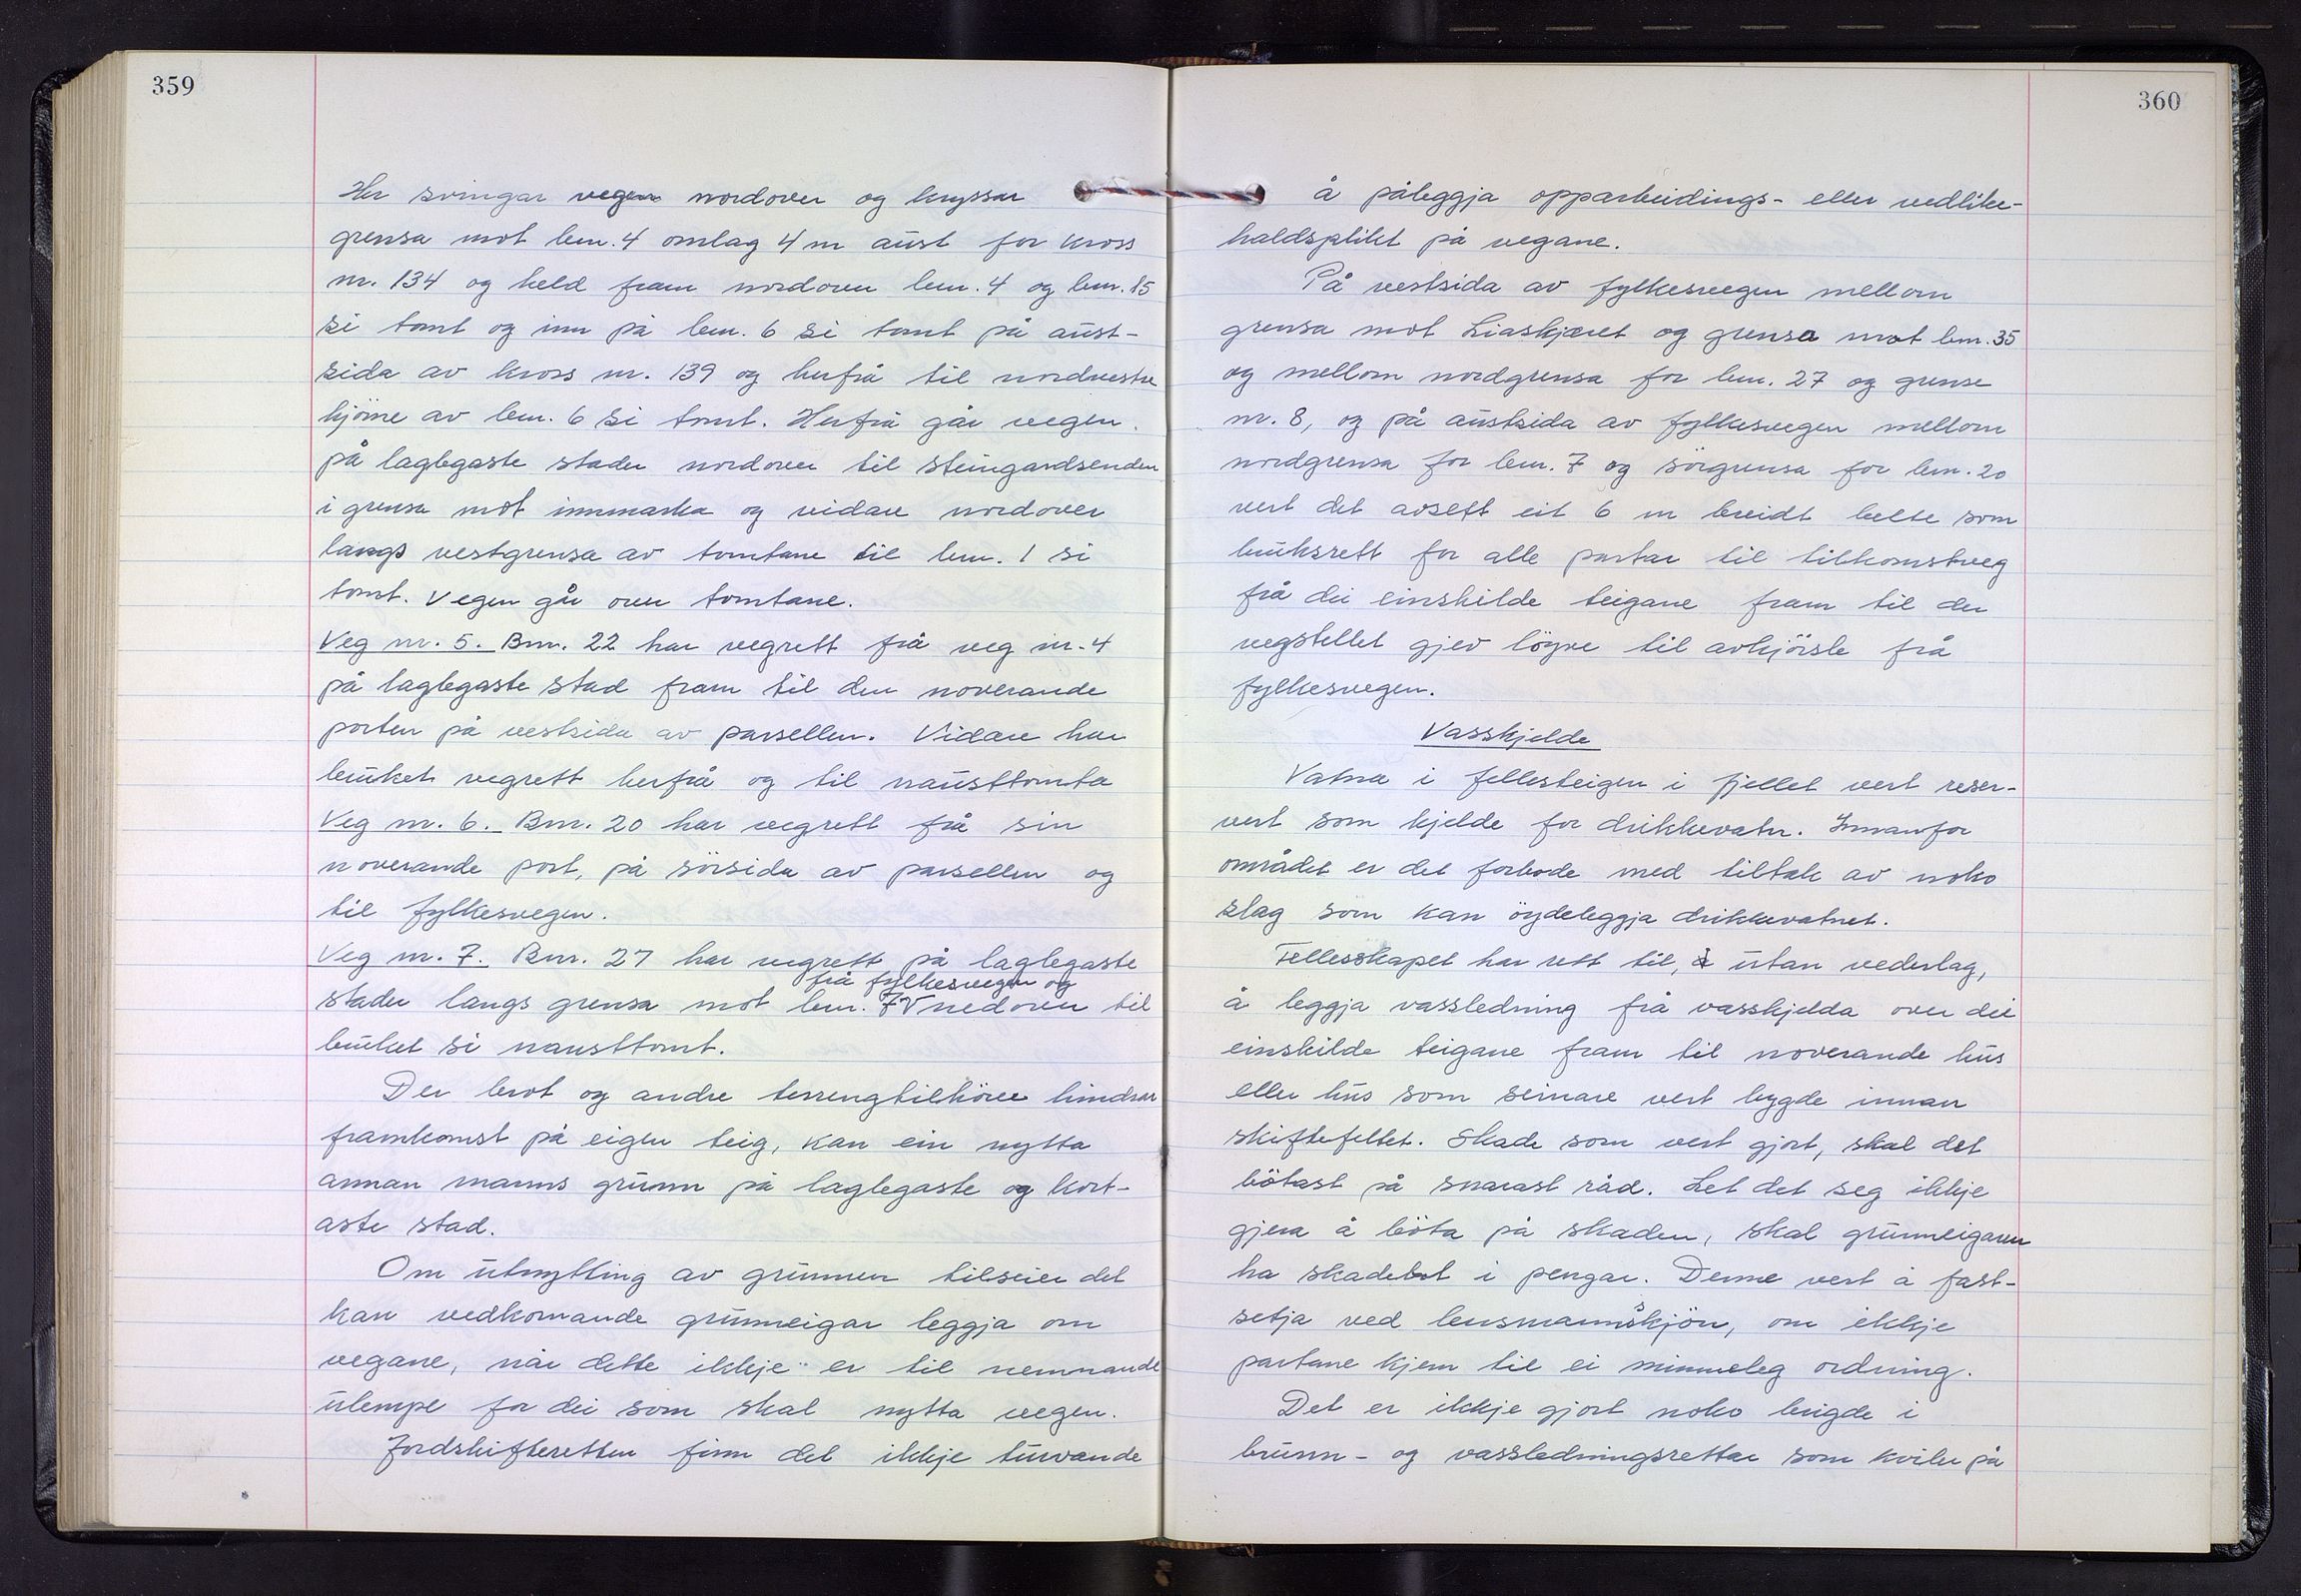 359
Her svingar vegen nordover og kryssar
grensa mot bnr. 4 omlag 4 m aust for kross
nr. 134 og held fram nordover bnr. 4 og bnr. 15
si tomt og inn på bnr. 6 si tomt på aust-
sida av kross nr. 139 og herfrå til nordvestre
hjörne av bnr. 6 si tomt. Herfrå går vegen
på laglegaste stader nordover til steingardsenden
i grensa mot innmarka og vidare nordover
langs vestgrensa av tomtane til bnr. 1 si
tomt. Vegen går over tomtane.
Veg nr. 5. Bnr. 22 har vegrett frå veg nr. 4
på laglegaste stad fram til den noverande
porten på vestsida av parsellen. Vidare har
bruket vegrett herfrå og til nausttomta
Veg nr. 6. Bnr. 20 har vegrett frå sin
noverande port, på sörsida av parsellen og
til fylkesvegen.
Veg nr. 7. Bnr. 27 har vegrett på laglegaste
frå fylkesvegen og
stader langs grensa mot bnr. 7 V nedover til
bruket si nausttomt.
Der brot og andre terrengtilhöve hindrar
framkomst på eigen teig, kan ein nytta
annan manns grunn på laglegaste og kort-
aste stad.
Om utnytting av grunnen tilseier det
kan vedkomande grunneigar leggja om
vegane, når dette ikkje er til nemnande
ulempe for dei som skal nytta vegen.
Jordskifteretten finn det ikkje turvande
360
å påleggja opparbeidings- eller vedlike-
haldsplikt på vegane.
På vestsida av fylkesvegen mellom
grensa mot Liaskjæret og grensa mot bnr. 35
og mellom nordgrensa for bnr. 27 og grense
nr. 8, og på austsida av fylkesvegen mellom
nordgrensa for bnr. 7 og sörgrensa for bnr. 20
vert det avsett eit 6 m breidt belte som
bruksrett for alle partar til tilkomstveg
frå dei einskilde teigane fram til der
vegstellet gjev löyve til avkjörsle frå
fylkesvegen.
Vasskjelde
Vatna i fellesteigen i fjellet vert reser-
vert som kjelde for drikkevatn. Innanfor
området er det forbode med tiltak av noko
slag som kan öydeleggja drikkevatnet.
Fellesskapet har rett til, å utan vederlag,
å leggja vassledning frå vasskjelda over dei
einskilde teigane fram til noverande hus
eller hus som seinare vert bygde innan
skiftefeltet. Skade som vert gjort, skal det
bötast på snarast råd. Let det seg ikkje
gjera å böta på skaden, skal grunneigaren
ha skadebot i pengar. Denne vert å fast-
setja ved lensmannsskjön, om ikkje
partane kjem til ei minneleg ordning.
Det er ikkje gjort noko brigde i
brunn- og vassledningsrettar som kviler på